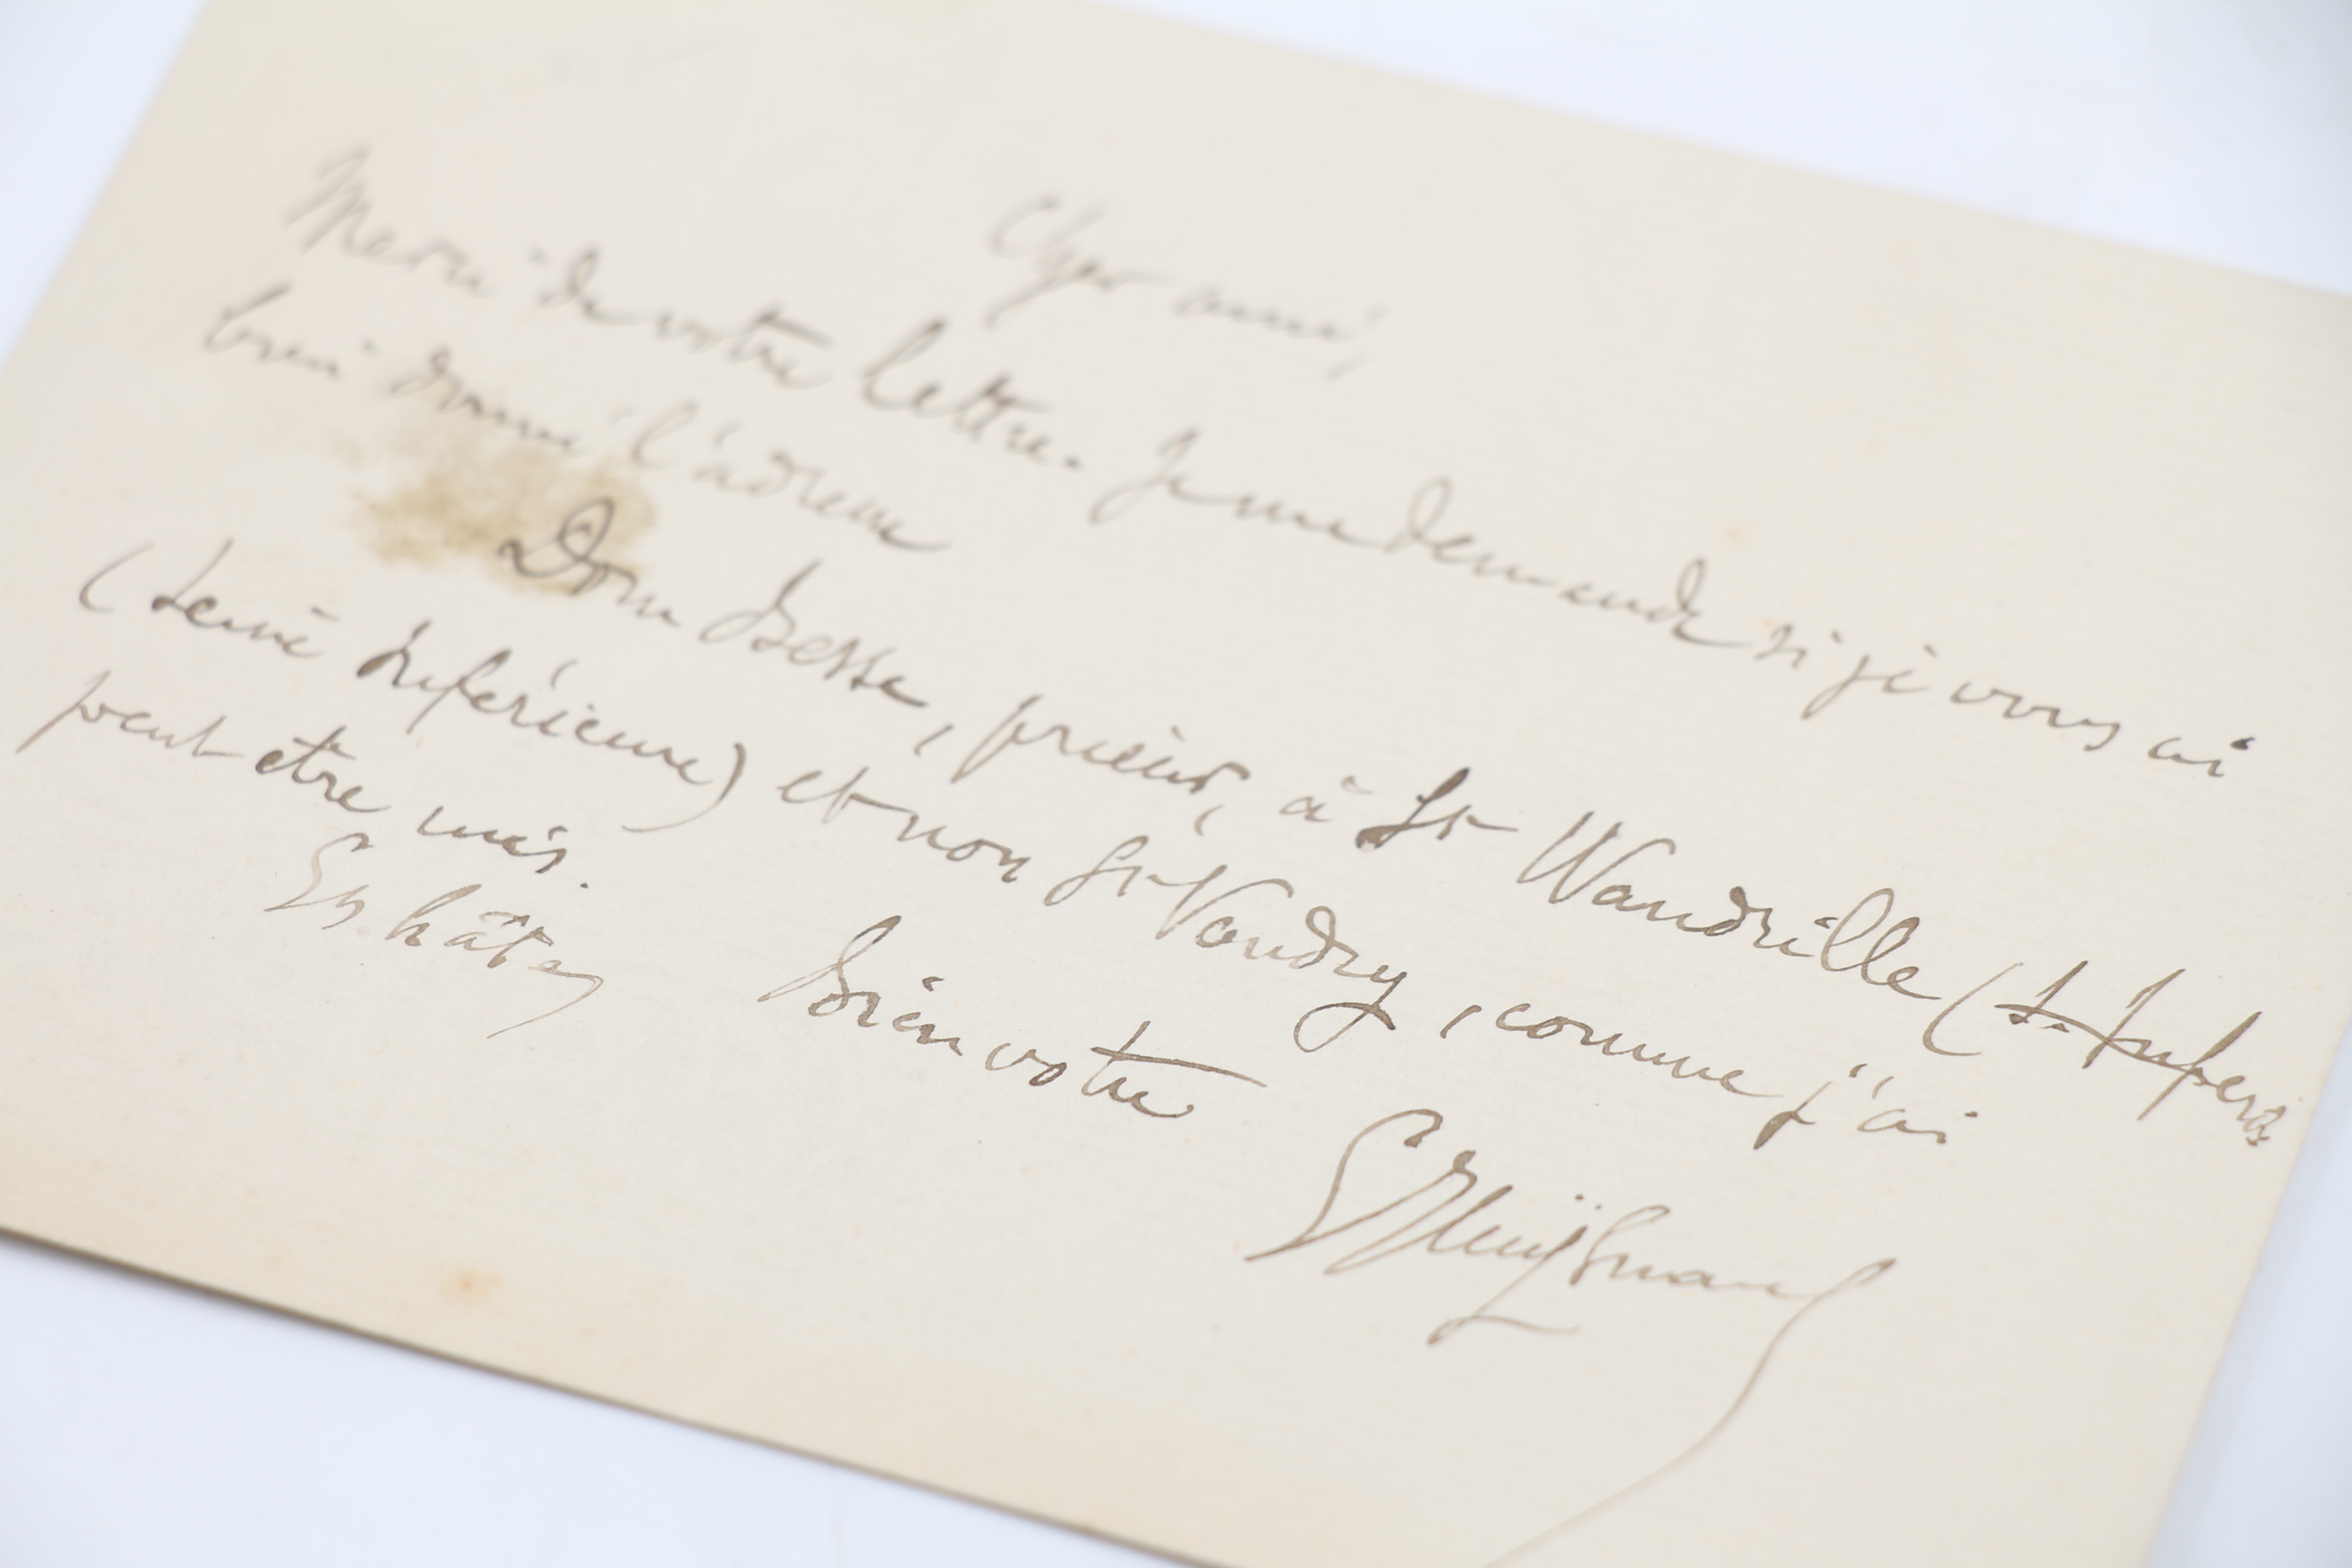 Cher ami,
Merci de votre lettre. Je me demande si je vous ai
bien donné l'adresse
Dom Besse, prieur, à St Wandrille (S. Infere
(Seine Inférieure) et non St Vandry, comme j'ai
peut être mis.
En hâte
Bien votre
G Huysmans